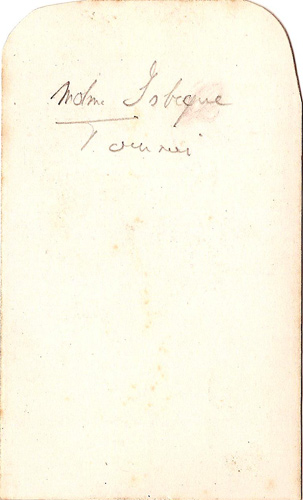 Mdme Isbecque
Tournai